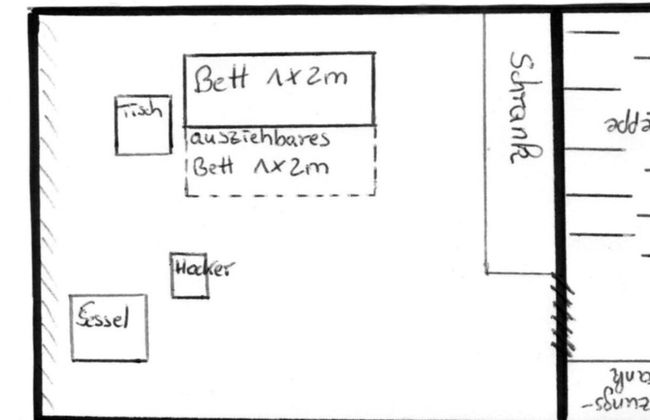 Bett 1x2m
Tisch
ausziehbares
Bett 1x2m
Schrank
Hocker
Sessel